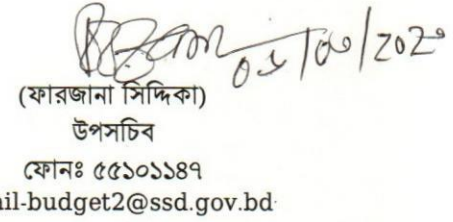 (ফারজানা সিদ্দিকা)
উপসচিব
ফোনঃ ৫৫১০১১৪৭
ail-budget2@ssd.gov.bd